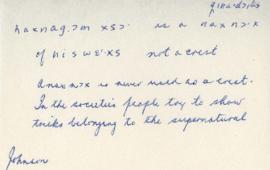 haxnag.ɔm xsɔ· is a naxnɔ·x
of niswɛ·xs not a crest
a naxnɔx is never used as a crest.
In the societies people try to show
tricks belonging to the supernatural
Johnson